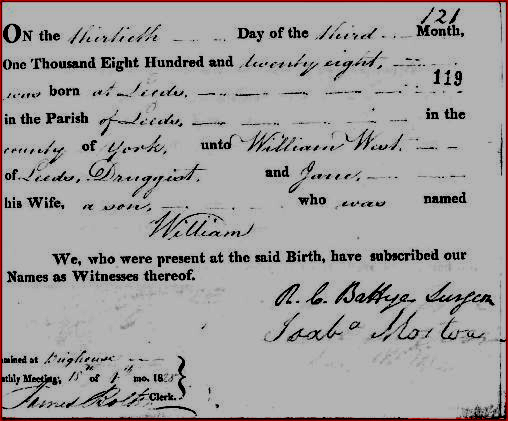 121
ON the thirtieth Day of the third Month,
One Thousand Eight Hundred and twenty eight,
119
was born at Leeds,
in the Parish of Leeds, in the
county of York, unto William West.
of Leeds, Druggist, and Jane,
his Wife, a son, who was named
William
We, who were present at the said Birth, have subscribed our
Names as Witnesses thereof.
R. C. Battye Surgeon
mined at Brighouse
nthly Meeting; 18th of 4th mo. 18
James Clerk.